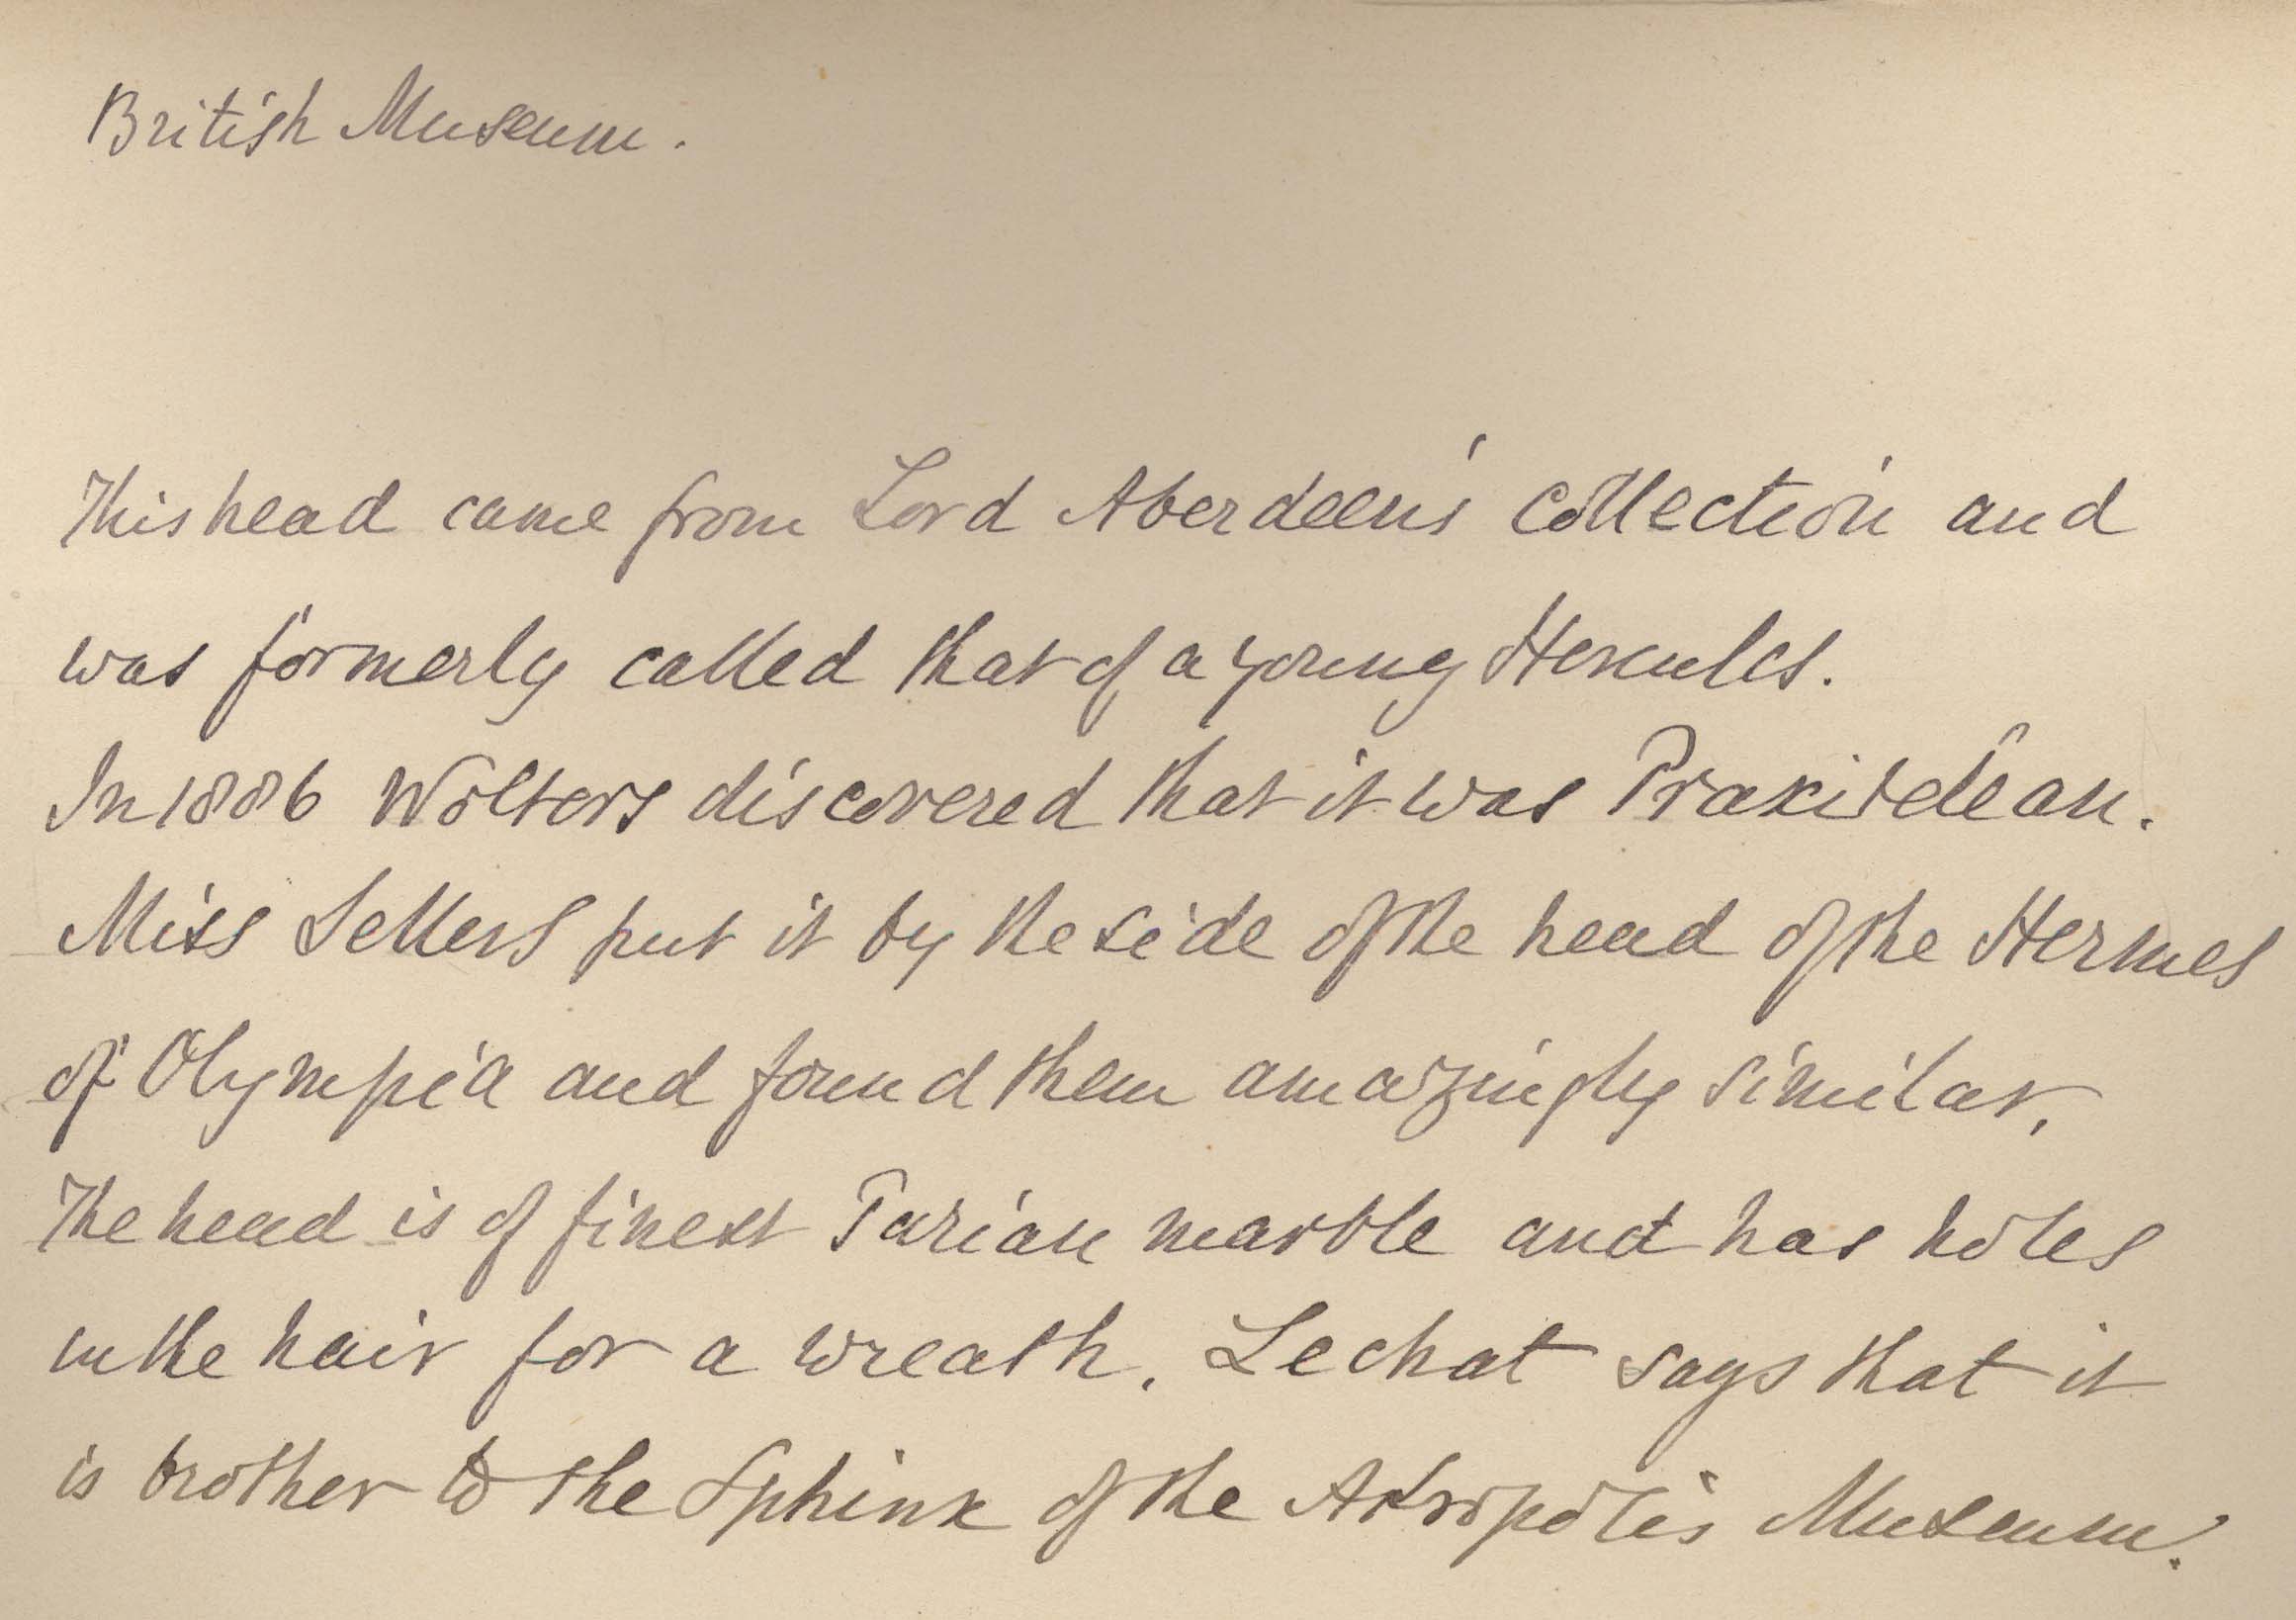 British Museum.
This head came from Lord Aberdeen's collection and
was formerly called that of a young Hercules.
In 1886 Wolters discovered that it was Praxitelean.
Miss Sellers put it by the side of the head of the Hermes
of Olympia and found them amazingly similar.
The head is of finest Parian marble and has holes
in the hair for a wreath. Lechat says that it
is brother to the Sphinx of the Akropolis Museum.